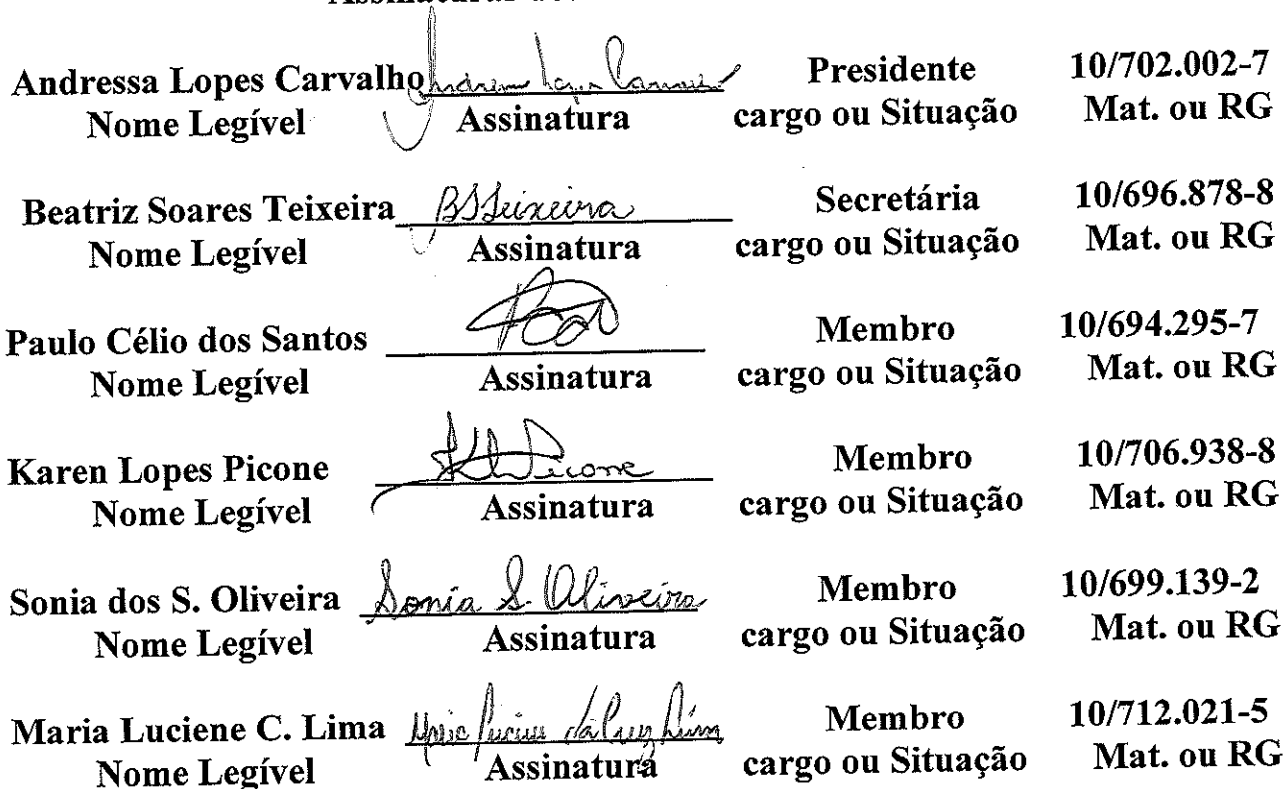 Andressa Lopes Carvalho Presidente 10/702.002-7
Nome Legível Assinatura cargo ou Situação Mat. ou RG
Beatriz Soares Teixeira BSTeixeira Secretária 10/696.878-8
Nome Legível Assinatura cargo ou Situação Mat. ou RG
Paulo Célio dos Santos Membro 10/694.295-7
Nome Legível Assinatura cargo ou Situação Mat. ou RG
Karen Lopes Picone Picone Membro 10/706.938-8
Nome Legível Assinatura cargo ou Situação Mat. ou RG
Sonia dos S. Oliveira Sonia S. Oliveira Membro 10/699.139-2
Nome Legível Assinatura cargo ou Situação Mat. ou RG
Maria Luciene C. Lima Membro 10/712.021-5
Nome Legível Assinatura cargo ou Situação Mat. ou RG